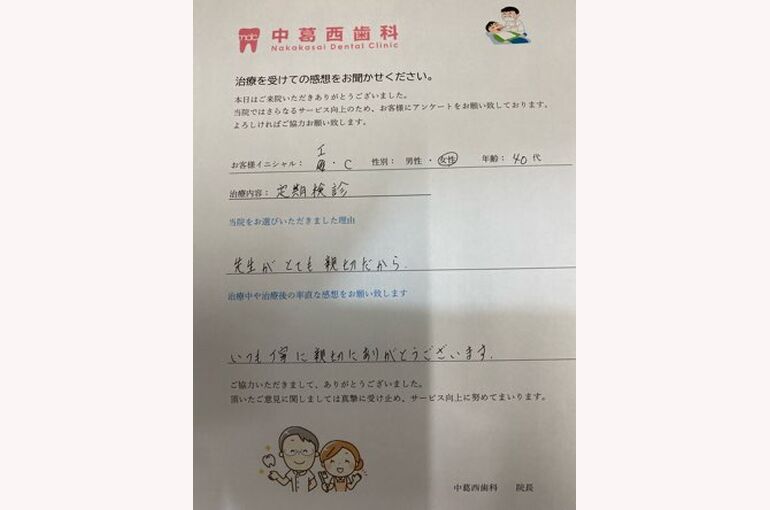 中葛西歯科
Nakakasai Dental Clinic
治療を受けての感想をお聞かせください。
本日はご来院いただきありがとうございました。
当院ではさらなるサービス向上のため、お客様にアンケートをお願い致しております。
よろしければご協力お願い致します。
お客様イニシャル： I・C 性別： 男性・女性 年齢：40代
治療内容：定期検診
当院をお選びいただきました理由
先生がとても親切だから.
治療中や治療後の率直な感想をお願い致します
いつも丁寧に親切にありがとうございます.
ご協力いただきまして、ありがとうございました。
頂いたご意見に関しましては真摯に受け止め、サービス向上に努めてまいります。
中葛西歯科 院長